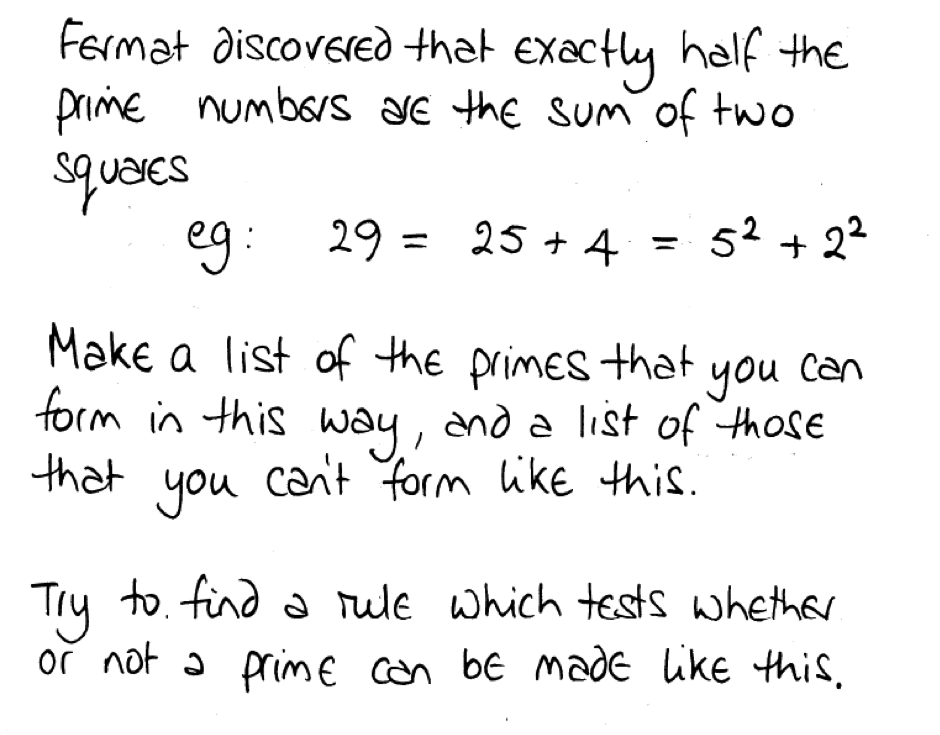 Fermat discovered that exactly half the
prime numbers are the sum of two
squares
eg: 29 = 25 + 4 = 5² + 2²
Make a list of the primes that you can
form in this way, and a list of those
that you can't form like this.
Try to find a rule which tests whether
or not a prime can be made like this.